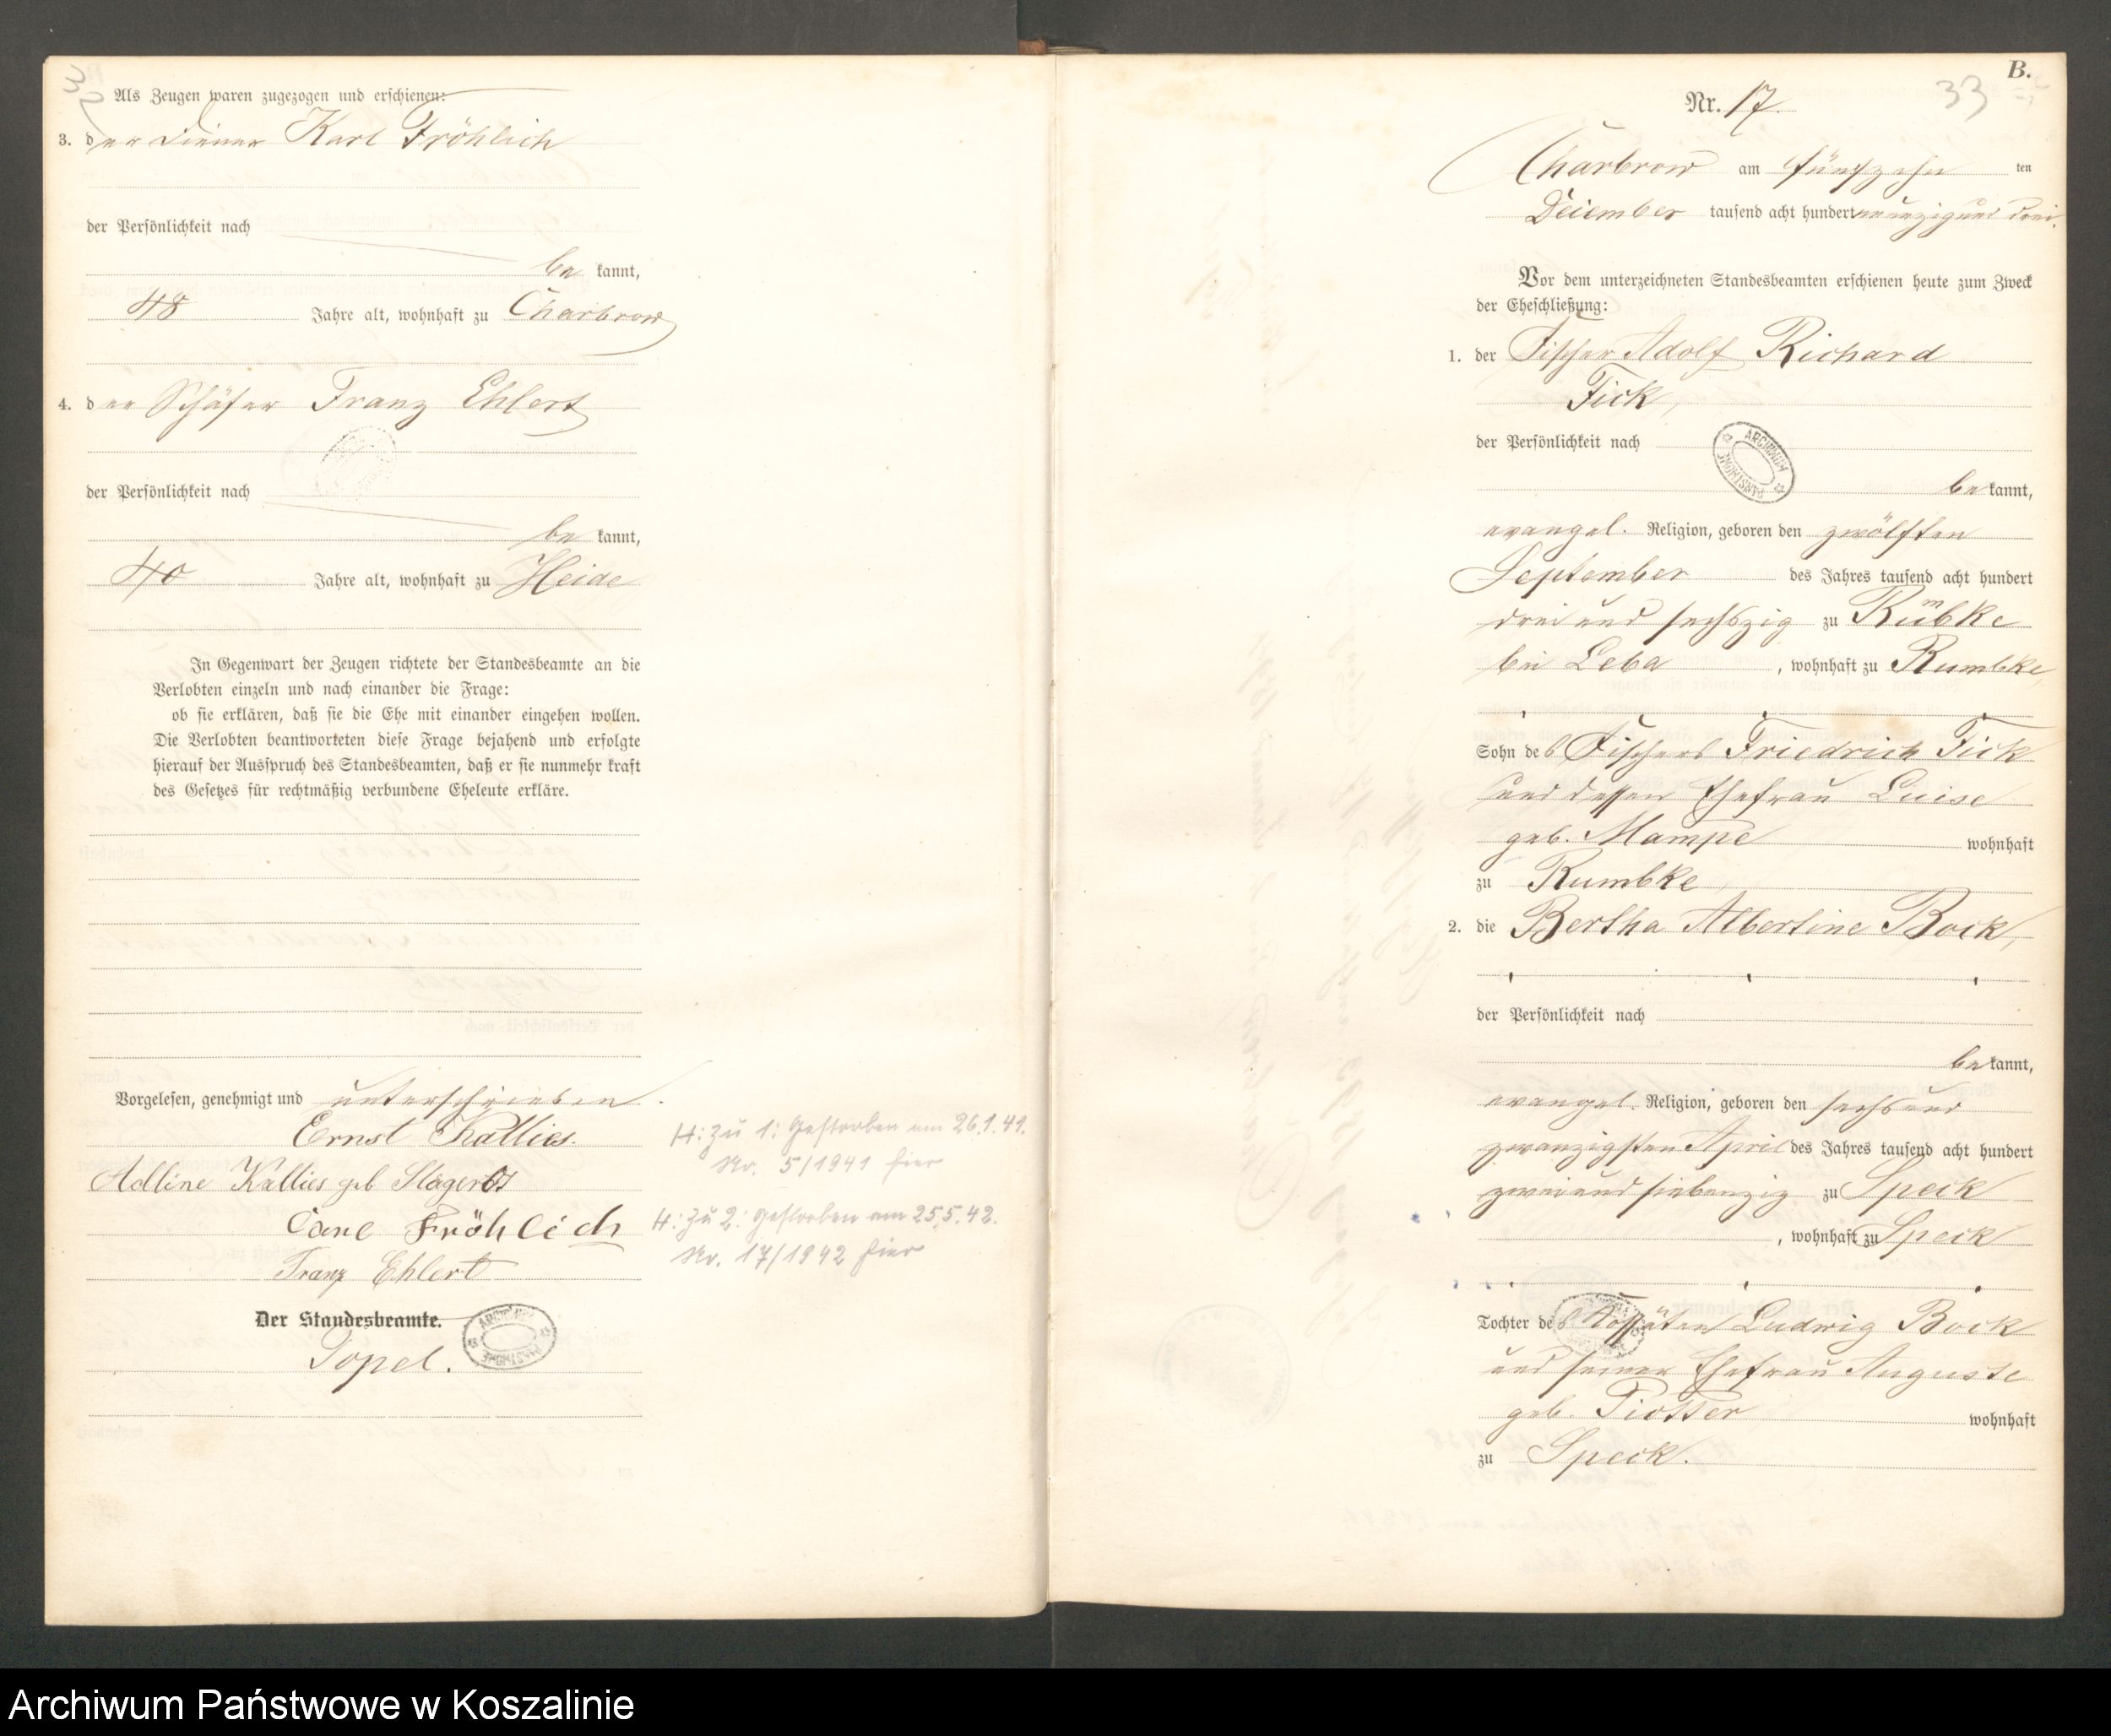 32
Als Zeugen waren zugezogen und erschienen:
3. der Diener Karl Fröhlich
der Persönlichkeit nach
be kannt,
48 Jahre alt, wohnhaft zu Charbrow
4. der Schäfer Franz Ehlert
der Persönlichkeit nach
be kannt,
40 Jahre alt, wohnhaft zu Heide
In Gegenwart der Zeugen richtete der Standesbeamte an die
Verlobten einzeln und nach einander die Frage:
ob sie erklären, daß sie die Ehe mit einander eingehen wollen.
Die Verlobten beantworteten diese Frage bejahend und erfolgte
hierauf der Ausspruch des Standesbeamten, daß er sie nunmehr kraft
des Gesetzes für rechtmäßig verbundene Eheleute erkläre.
Vorgelesen, genehmigt und unterschrieben.
Ernst Kallies.
Adline Kallies geb
Carl Fröhlich
Franz Ehlert
Der Standesbeamte.
Topel.
H: Zu 1: Gestorben am 26.1.41.
Nr. 5/1941 hier
H: Zu 2: Gestorben am 25.5.42.
Nr. 17/1942 hier
B.
33
Nr. 17
Charbrow am fünfzehn ten
Dezember tausend acht hundert neunzig und drei.
Vor dem unterzeichneten Standesbeamten erschienen heute zum Zweck
der Eheschließung:
1. der Fischer Adolf Richard
Fick,
der Persönlichkeit nach
ARCHIWUM PAŃSTWOWE
be kannt,
evangel. Religion, geboren den zwölften
September des Jahres tausend acht hundert
drei und sechszig zu Rumbke
bei Leba, wohnhaft zu Rumbke,
Sohn des Fischers Friedrich Fick
und dessen Ehefrau Luise
geb. Mampe wohnhaft
zu Rumbke,
2. die Bertha Albertine Bock,
der Persönlichkeit nach
be kannt,
evangel. Religion, geboren den sechs und
zwanzigsten April des Jahres tausend acht hundert
zwei und siebenzig zu Speck
, wohnhaft zu Speck
Tochter des Kossäten Ludwig Bock
und seiner Ehefrau Auguste
geb. wohnhaft
zu Speck.
Archiwum Państwowe w Koszalinie